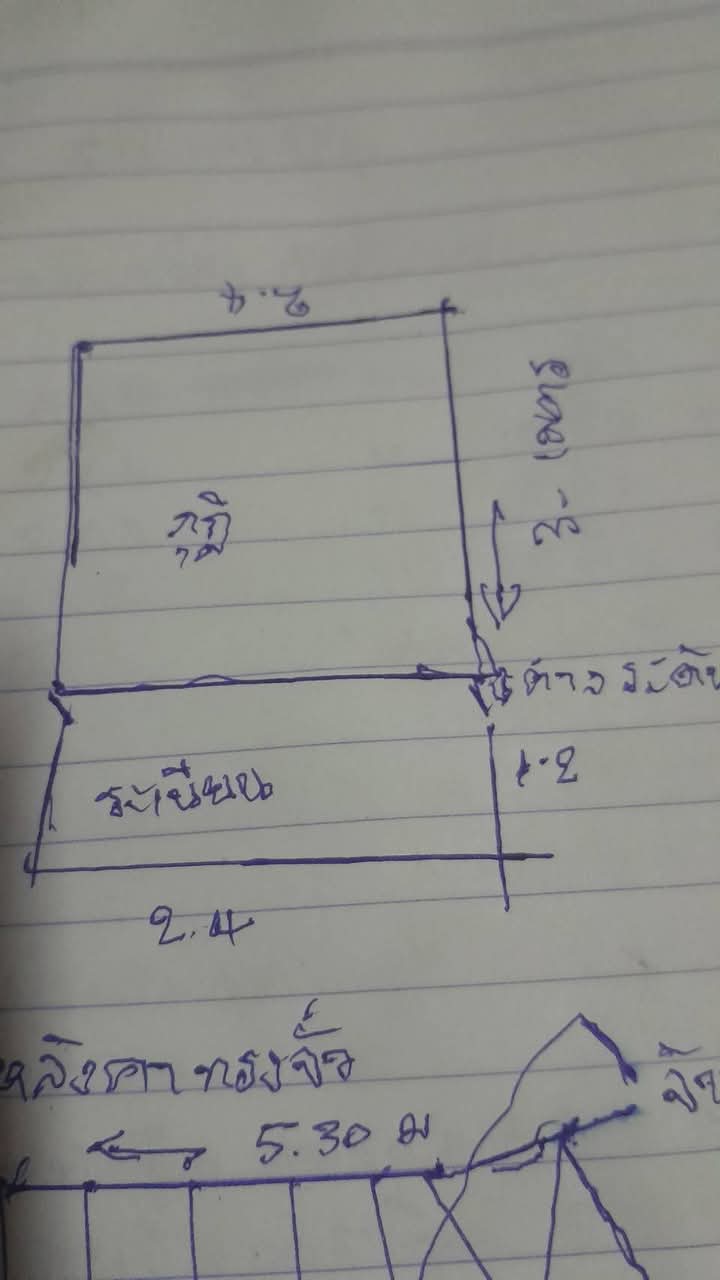 2.4
3- เมตร
กุฏิ
ต่างระดับ
ระเบียบ
1.2
2.4
หลังคาทรงจั่ว
จั่ว
5.30 ม